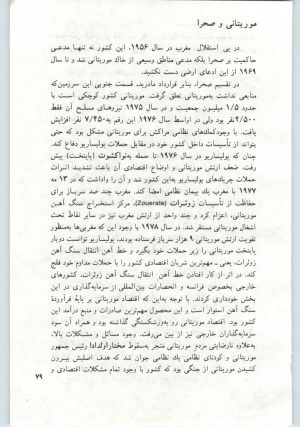 موریتانی و صحرا
در پی استقلال مغرب در سال ۱۹۵۶، این کشور نه تنها مدعی
حاکمیت بر صحرا بلکه مدعی مناطق وسیعی از خاك موریتانی شد و تا سال
۱۹۶۹ از این ادعای ارضی دست نکشید.
در تقسیم صحرا، بنابر قرارداد مادرید، قسمت جنوبی این سرزمین‌که
منابعی نداشت به‌موریتانی تعلق گرفت. موریتانی کشور کوچکی است با
حدود ۱/۵ میلیون جمعیت و در سال ۱۹۷۵ نیروهای مسلح آن فقط
۴/۵۰۰نفر بود ولی در اواسط سال ۱۹۷۶ این رقم به‌۷/۴۵۰ نفر افزایش
یافت. با وجودکمك‌های نظامی مراکش برای موریتانی مشکل بود که حتی
بتواند از تأسیسات داخل کشور خود در مقابل حملات پولیساریو دفاع کند.
چنان که پولیساریو در سال ۱۹۷۶ تا حمله به‌نواکشوت (پایتخت) پیش
رفت. ضعف ارتش موریتانی و اوضاع اقتصادی آن باعث تشدید اثرات
حملات چریك‌های پولیساریو به‌این کشور شد و آن را واداشت که در ۱۳ مه
۱۹۷۷ با مغرب یك پیمان نظامی امضا کند. مغرب چند صد سرباز برای
حفاظت از تأسیسات زوئرات (Zouerate)، مرکز استخراج سنگ آهن
موریتانی، اعزام کرد و چند واحد از ارتش مغرب نیز در سایر نقاط تحت
اشغال موریتانی مستقر شد. در سال ۱۹۷۸ با وجود این که مغربی‌ها به‌منظور
تقویت ارتش موریتانی ۹ هزار سرباز فرستاده بودند، پولیساریو توانست دوبار
پایتخت موریتانی را زیر حملات خود بگیرد و خط آهن انتقال سنگ آهن
زوئرات، یعنی، مهم‌ترین شریان اقتصادی کشور را با حملات مداوم خود فلج
کند. در اثر از کار افتادن خط آهن انتقال سنگ آهن زوئرات، کشورهای
خارجی بخصوص فرانسه و انحصارات بین‌المللی از سرمایه‌گذاری در این
بخش خودداری کردند. با توجه به‌این که اقتصاد موریتانی بر پایهٔ فرآوردهٔ
سنگ آهن استوار است و این محصول مهم‌ترین صادرات و منبع درآمد این
کشور بود، اقتصاد موریتانی رو به‌ورشکستگی گذاشته بود و همراه آن سود
سرمایه‌گذاران خارجی نیز از بین می‌رفت. وجود مسائل و مشکلات بالا،
به‌علاوه نارضایتی مردم موریتانی منجر به‌سقوط مختاراولدادا رئیس جمهور
موریتانی و کودتای نظامی یك نظامی جوان شد که هدف اصلیش بیرون
کشیدن موریتانی از جنگی بود که کشور با وجود تمام مشکلات اقتصادی و
۷۹